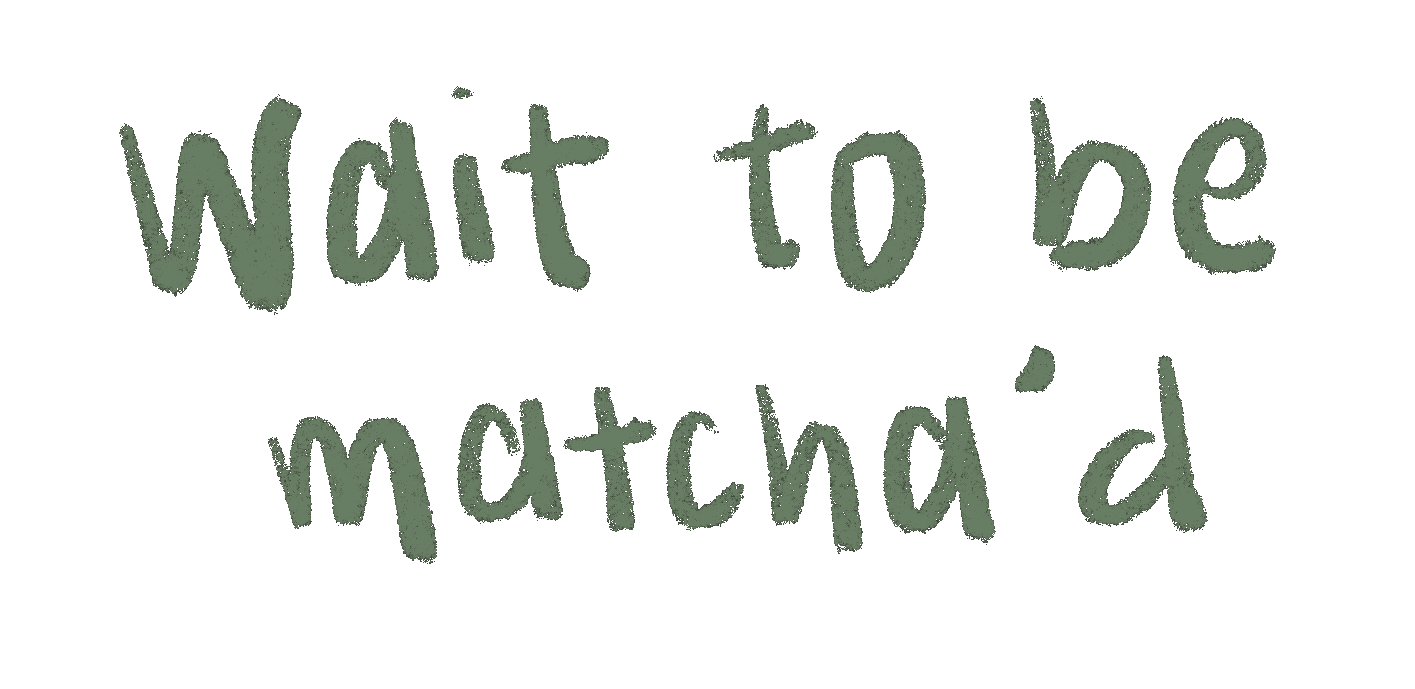 Wait to be
matcha'd